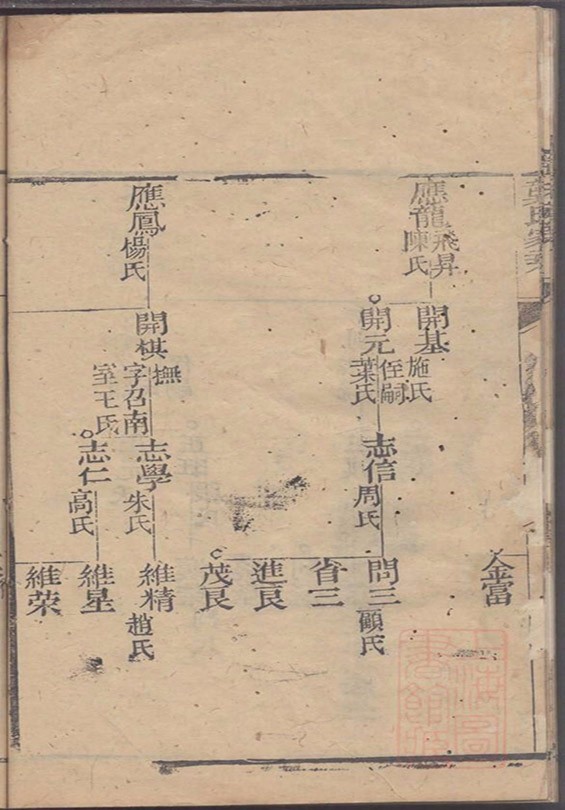 金富
應龍
飛昇
陳氏
開基
施氏
開元
侄嗣
葉氏
志信
周氏
問三
顧氏
省三
進艮
茂艮
應鳳
楊氏
開棋
撫
字召南
室王氏
志學
朱氏
志仁
高氏
維精
趙氏
維星
維荣